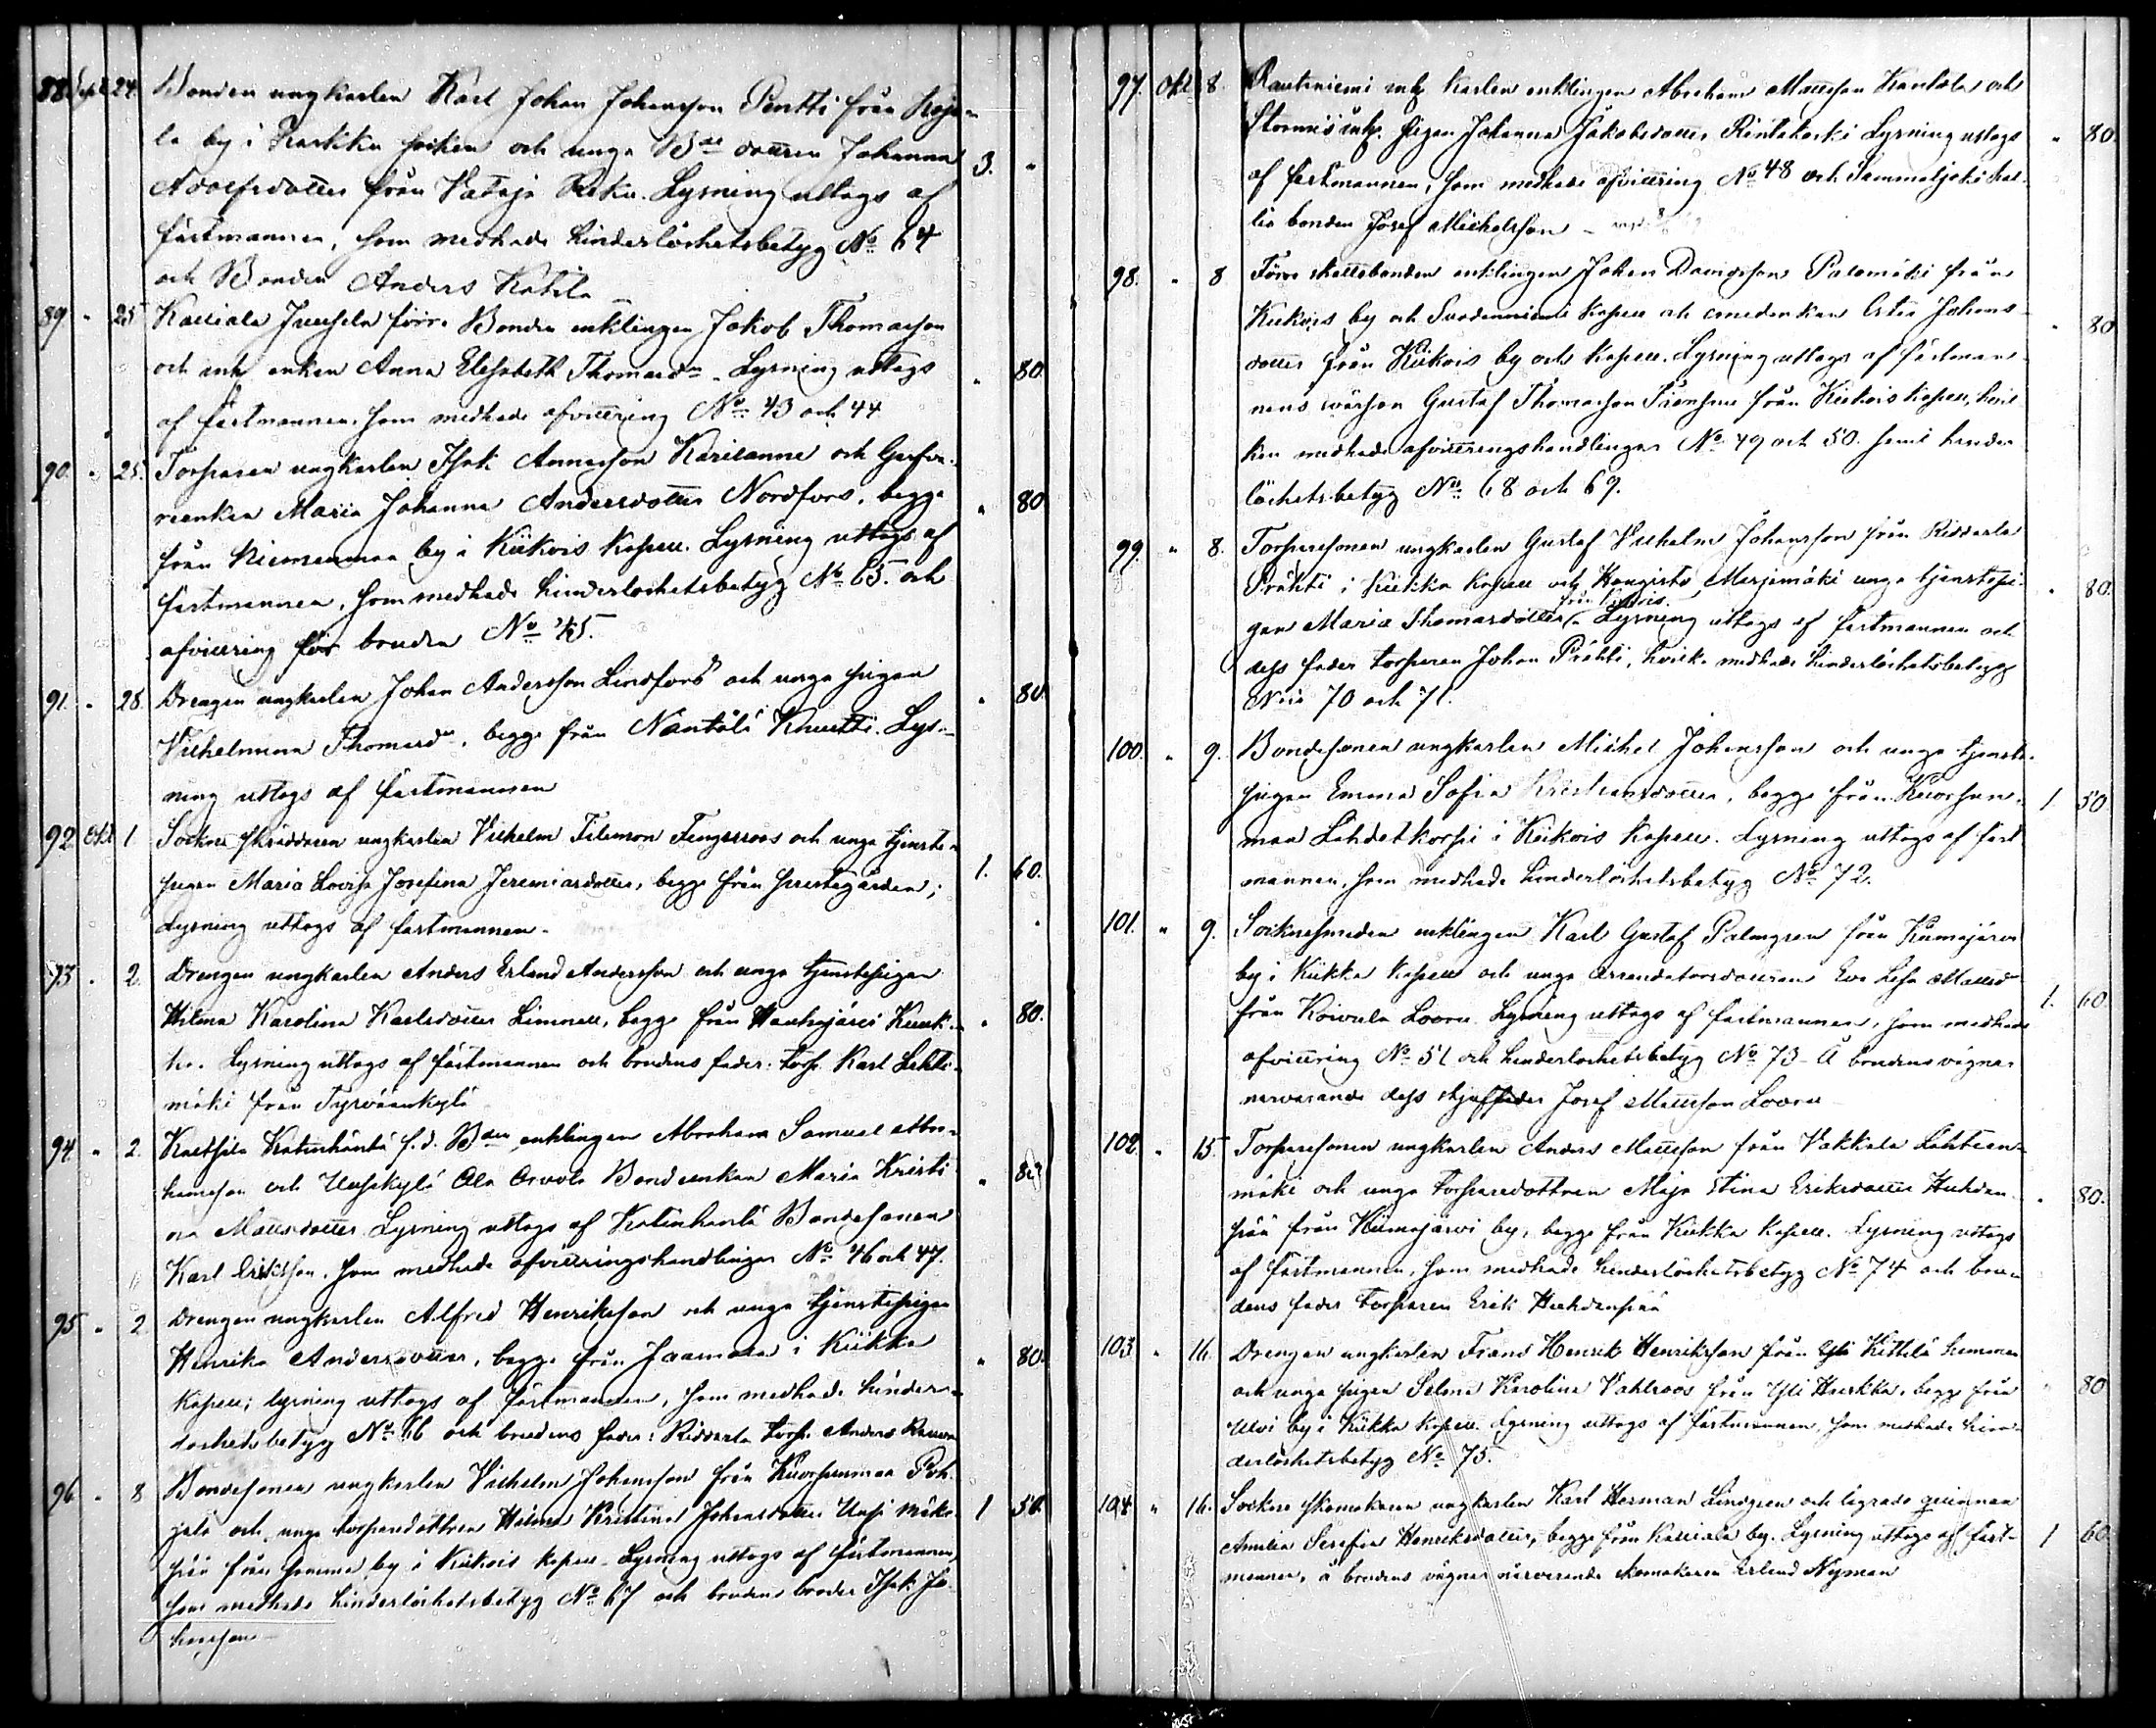 88 Sept. 24. Bonden ungkarlen Karl Johan Johansson Pentti från Koja-
la by i Karkku socken och unga Bde dottren Johanna 3. "
Adolfsdotter från Vataja Reku. Lysning uttogs af
fästmannen, som medhade hinderlöshetsbetyg No 64
och Bonden Anders Katila
89 " 25 Kalliala Juusela förre Bonden enklingen Jakob Thomasson
och inh. enkan Anna Elisabeth Thomasdr. Lysning uttogs " 80.
af fästmannen som medhade afvittring No 43 och 44
90. " 25. Torparen ungkarlen Isak Annasson Karilanne och Garfva-
reenkan Maria Johanna Andersdotter Nordfors, begge " 80
från Niemenmaa by i Kiikois Kapell. Lysning uttogs af
fästmannen, som medhade hinderlöshetsbetyg No 65. och
afvittring för bruden No 45.
91. " 28. Drengen ungkarlen Johan Andersson Lindfors och unga pigan " 80.
Vilhelmina Thomasdr, begge från Nantälä Knuutti. Lys-
ning uttogs af fästmannen
92 Okt 1 Sockne skräddaren ungkarlen Vilhelm Filemon Fengerroos och unga tjenste-
pigan Maria Lovisa Josefina Jeremiasdotter, begge från prestegården; 1. 60.
Lysning uttogs af fästmannen.
93 " 2. Drengen ungkarlen Anders Erland Andersson och unga tjenstepigan
Hilma Karolina Karlsdotter Limnell, begge från " 80.
Lysning uttogs af fästmannen och brudens fader: torp. Karl Lehti-
mäki från Tyrväänkylä
94 " 2. Kaltsila Katinhäntä f.d. Bden enklingen Abraham Samuel Abra-
hamsson och Uusikylä Ala Orvola Bondeenkan Maria Kristi- " 80
na Mattsdotter Lysning uttogs af Katinhäntä Bondesonen
Karl Eriksson, som medhade afvittringshandlingar No 46 och 47.
95 " 2 Drengen ungkarlen Alfred Henriksson och unga tjenstepigan
Henrika Andersdotter, begge från Jaamala i Kiikka " 80.
Kapell; lysning uttogs af fästmannen, som medhade hinder-
löshetsbetyg No 66 och brudens fader: Ridvala torp. Anders
96 " 8 Bondesonen ungkarlen Vilhelm Johansson från Kuorsunmaa Poh-
jala och unga torparedottren Hilma Kristina Johansdotter Uusi 1 50.
från samma by i Kiikois kapell. Lysning uttogs af fästmannen,
som medhade hinderlöshetsbetyg No 67 och brudens broder Isak Jo-
hansson
97. Okt 8. Rautiniemi inh. karlen enklingen Abraham Mattsson Kantola och
Stormis inh. pigan Johanna Jakobsdotter Rintakoski Lysning uttogs " 80.
af fästmannen, som medhade afvittring No 48 och Sammaljoki
bonden Josef Michelsson
98. " 8 Förre skattebonden enklingen Johan Davidsson Palomäki från
Kiikois by och Suodenniemi Kapell och smedenkan Johans- " 80
dotter från Kiikois by och kapell. Lysning uttogs af fästman-
nens svärson Gustaf Thomasson från Kiikois Kapell, hvil-
ken medhade afvittringshandlingar No 49 och 50. samt hinder-
löshetsbetyg No 68 och 69.
99. " 8. Torparesonen ungkarlen Gustaf Vilhelm Johansson från Ridvala
Präkti i Kiikka Kapell och Kangisto Marjamäki unga tjenstepi- " 80.
gan Maria Thomasdotter från Kiikois. Lysning uttogs af fästmannen och
dess fader torparen Johan Präkti, hvilka medhade hinderlöshetsbetyg
No 70 och 71.
100. " 9. Bondesonen ungkarlen Michel Johansson och unga tjenste-
pigan Emma Sofia Kristiansdotter, begge från Kuorsun- 1 50
maa Lähdekorpi i Kiikois Kapell. Lysning uttogs af fäst-
mannen, som medhade hinderlöshetsbetyg No 72.
101. " 9. Socknesmeden enklingen Karl Gustaf Palmgren från Kiimajärvi
by i Kiikka Kapell och unga arrendatorsdottren Eva Lisa Mattsdr
från Koivula Lovru. Lysning uttogs af fästmannen, som medhade 1. 60.
afvittring No 51 och hinderlöshetsbetyg No 73. Å brudens vägnar
närvarande dess styffader Josef Mattsson Lovru
102. " 15. Torparesonen ungkarlen Anders Mattsson från Vakkala Lähteen-
mäki och unga torparedottren Maja Stina Eriksdotter Huhdan- " 80.
pää från Kiimajärvi by, begge från Kiikka Kapell. Lysning uttogs
af fästmannen, som medhade hinderlöshetsbetyg No 74 och bru-
dens fader torparen Erik Huhdanpää
103 " 16. Drengen ungkarlen Frans Henrik Henriksson från Yli Kittilä hemman
och unga pigan Selma Karolina Vahlroos från Yli Hurkka, begge från " 80
Illoi by i Kiikka kapell. Lysning uttogs af fästmannen, som medhade hin-
derlöshetsbetyg No 75.
104. " 16. Sockne skomakaren ungkarlen Karl Herman Lindgren och lägrade qvinnan
Amalia Serafia Henriksdotter, begge från Kalliala by. Lysning uttogs af fäst- 1 60
mannen, å brudens vägnar närvarande skomakaren Erland Nyman